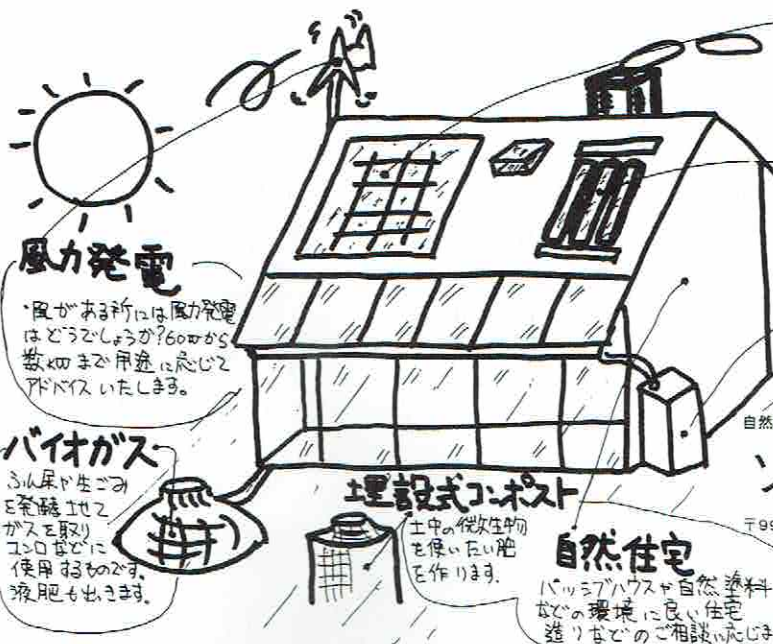 風力発電
・風がある所には風力発電
はどうでしょうか?60wから
数kwまで用途に応じて
アドバイスいたします。
バイオガス
ふん尿や生ごみ
を発酵させて
ガスを取り
コンロなどに
使用するものです。
液肥も出きます。
埋設式コンポスト
土中の微生物
を使いたい肥
を作ります。
自然住宅
パッシブハウスや自然塗料
などの環境に良い住宅
造りなどのご相談に応じま
自然
〒99